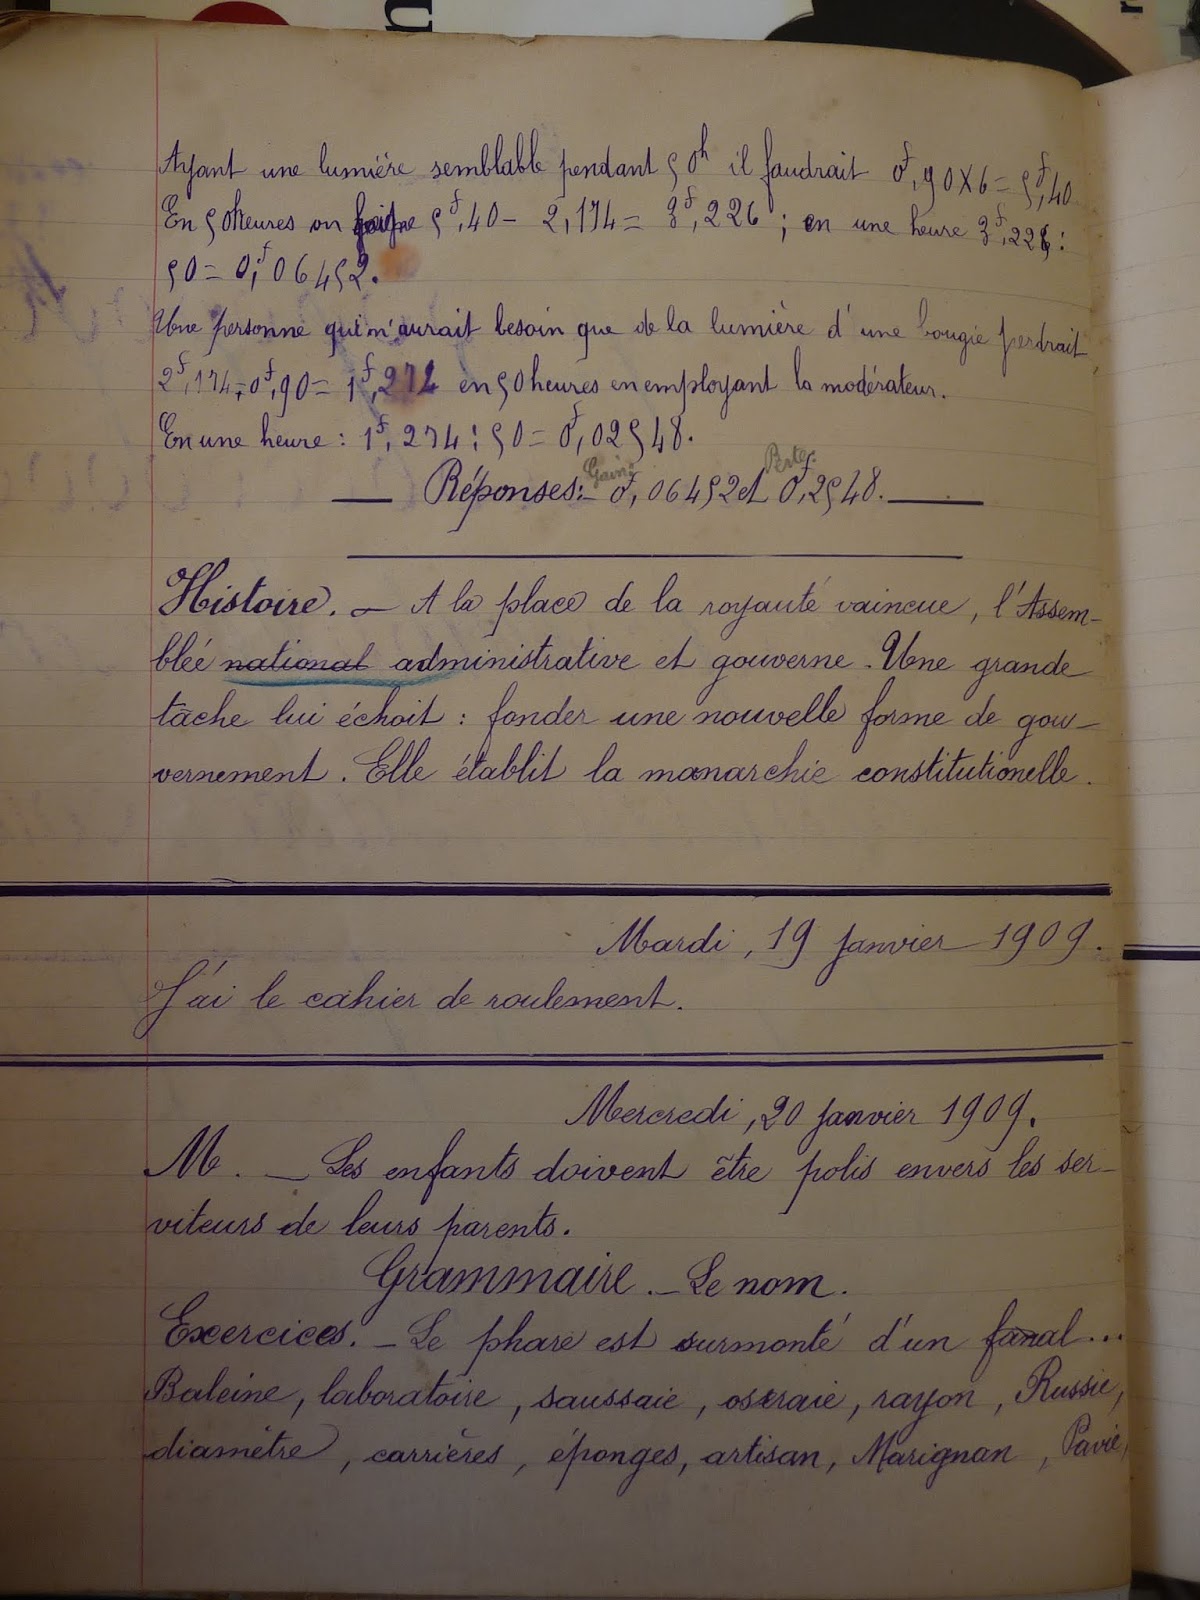 Ayant une lumière semblable pendant 50h il faudrait 0f,90x6=5f,40
En 50heures on gagne 5f,40-2,174=3f,226; en une heure 3f,226:
50=0f,06452.
Une personne qui n'aurait besoin que de la lumière d'une bougie perdrait
2f,174-0f,90=1f,274 en 50heures en employant la modérateur.
En une heure: 1f,274:50=0f,02548.
Gain Perte
Réponses:-0f,06452 et 0f,2548.
Histoire. - A la place de la royauté vaincue, l'Assem-
bleé national administrative et gouverne. Une grande
tâche lui échoit: fonder une nouvelle forme de gou-
vernement. Elle établit la monarchie constitutionelle.
Mardi, 19 Janvier 1909.
J'ai le cahier de roulement.
Mercredi, 20 Janvier 1909.
M. - Les enfants doivent être polis envers les ser-
viteurs de leurs parents.
Grammaire. - Le nom.
Exercices. - Le phare est surmonté d'un fanal...
Baleine, laboratoire, saussaie, oseraie, rayon, Russie,
diamètre, carrières, éponges, artisan, Marignan, Pavie,